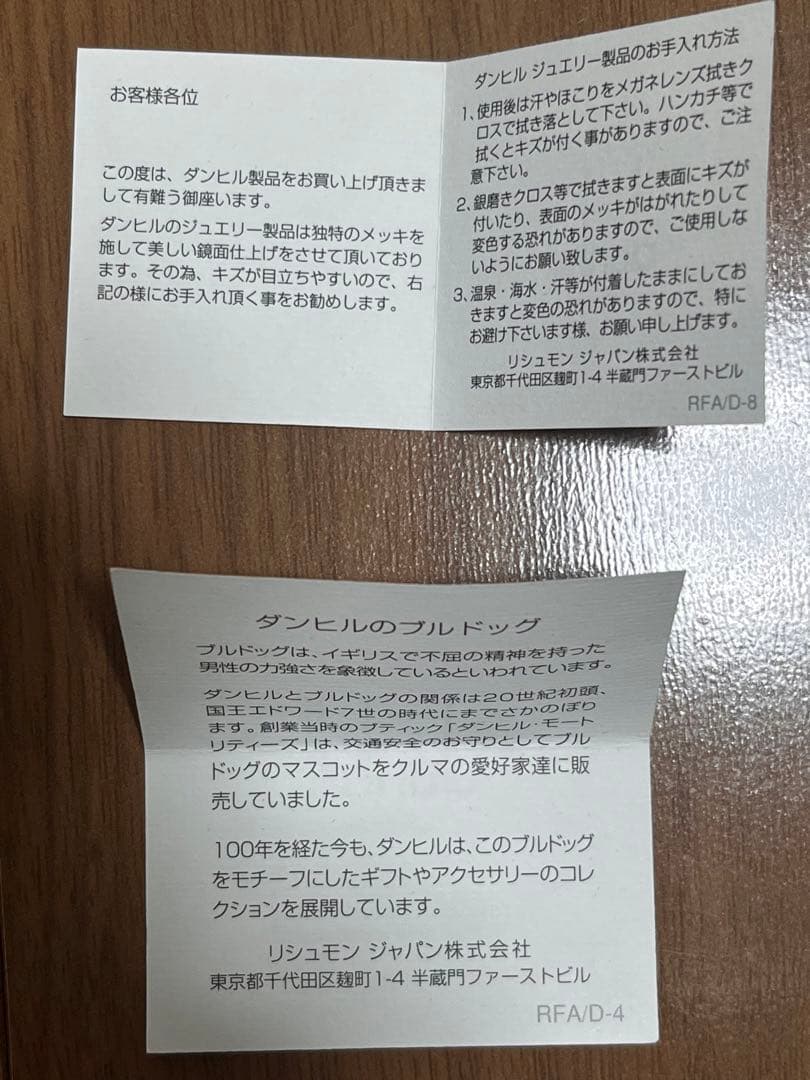 お客様各位
この度は、ダンヒル製品をお買い上げ頂きま
して有難う御座います。
ダンヒルのジュエリー製品は独特のメッキを
施して美しい鏡面仕上げをさせて頂いており
ます。その為、キズが目立ちやすいので、右
記の様にお手入れ頂く事をお勧めします。
ダンヒル ジュエリー製品のお手入れ方法
1、使用後は汗やほこりをメガネレンズ拭きク
ロスで拭き落として下さい。ハンカチ等で
拭くとキズが付く事がありますので、ご注
意下さい。
2、銀磨きクロス等で拭きますと表面にキズが
付いたり、表面のメッキがはがれたりして
変色する恐れがありますので、ご使用しな
いようにお願い致します。
3、温泉・海水・汗等が付着したままにしてお
きますと変色の恐れがありますので、特に
お避け下さいます様、お願い申し上げます。
リシュモン ジャパン株式会社
東京都千代田区麹町1-4 半蔵門ファーストビル
RFA/D-8
ダンヒルのブルドッグ
ブルドッグは、イギリスで不屈の精神を持った
男性の力強さを象徴しているといわれています。
ダンヒルとブルドッグの関係は20世紀初頭、
国王エドワード7世の時代にまでさかのぼり
ます。創業当時のブティック「ダンヒル・モート
リティーズ」は、交通安全のお守りとしてブル
ドッグのマスコットをクルマの愛好家達に販
売していました。
100年を経た今も、ダンヒルは、このブルドッグ
をモチーフにしたギフトやアクセサリーのコレ
クションを展開しています。
リシュモン ジャパン株式会社
東京都千代田区麹町1-4 半蔵門ファーストビル
RFA/D-4